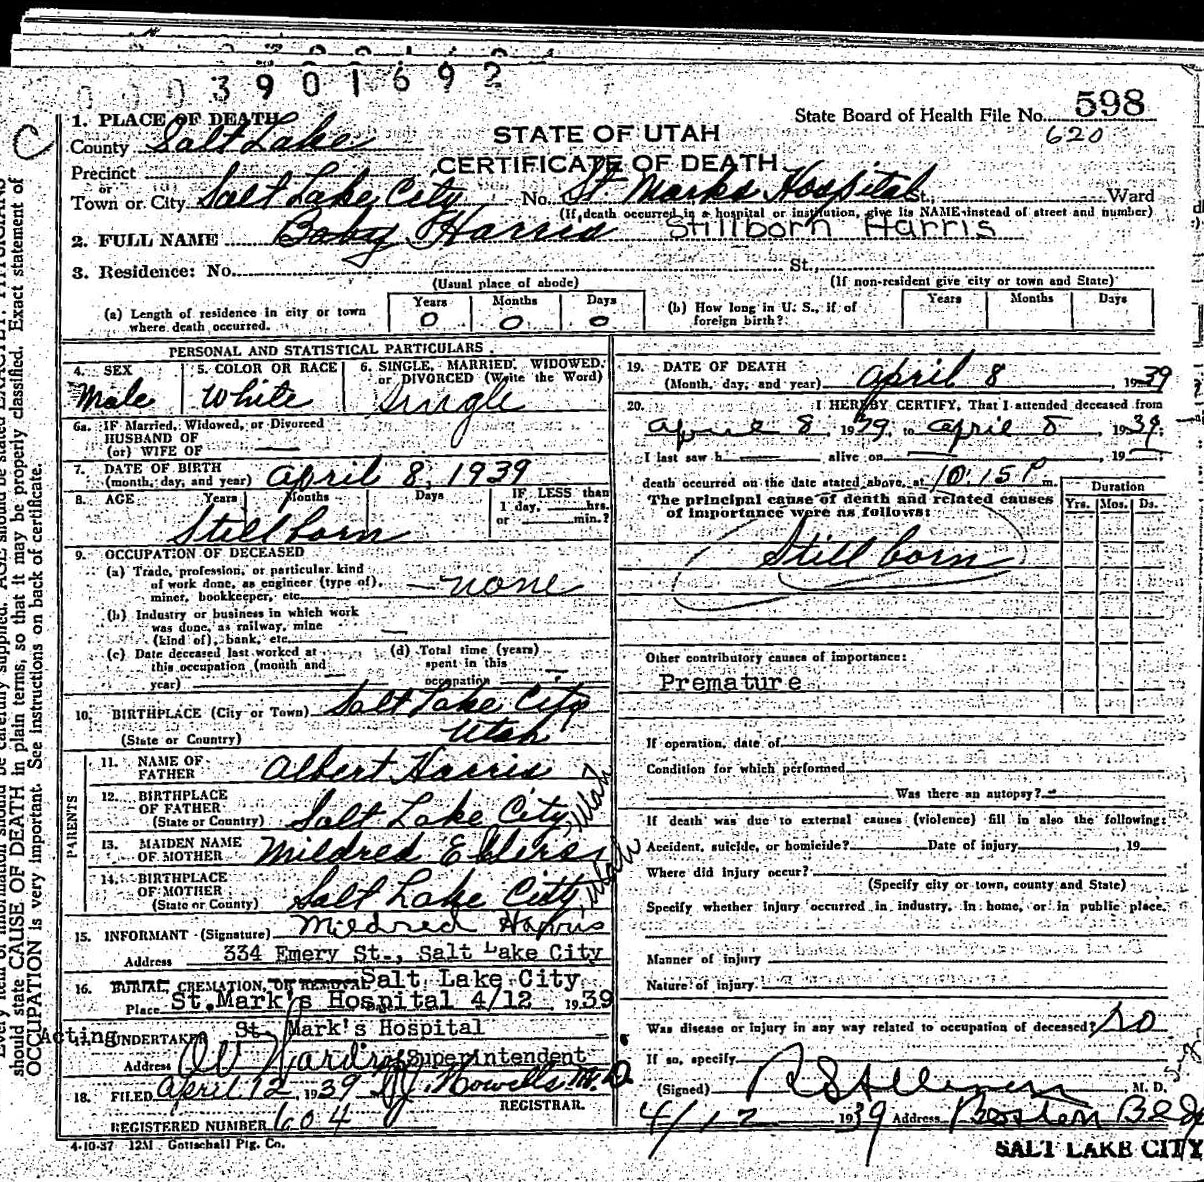 0003901692
State Board of Health File No. 598
620
1. PLACE OF DEATH
STATE OF UTAH
County Salt Lake
CERTIFICATE OF DEATH
Precinct
or
Town or City Salt Lake City No. St Marks Hospital St., Ward
(If death occurred in a hospital or institution, give its NAME instead of street and number)
2. FULL NAME Baby Harris Stillborn Harris
3. Residence: No. St.,
(Usual place of abode) (If non-resident give city or town and State)
(a) Length of residence in city or town where death occurred. Years 0 Months 0 Days 0
(b) How long in U. S., if of foreign birth? Years Months Days
PERSONAL AND STATISTICAL PARTICULARS
4. SEX Male
5. COLOR OR RACE White
6. SINGLE, MARRIED, WIDOWED, or DIVORCED (Write the Word) Single
6a. IF Married, Widowed, or Divorced
HUSBAND OF
(or) WIFE OF
7. DATE OF BIRTH
(month, day, and year) April 8, 1939
8. AGE Years Months Days IF LESS than 1 day, hrs. or min.?
Stillborn
9. OCCUPATION OF DECEASED
(a) Trade, profession, or particular kind
of work done, as engineer (type of),
miner, bookkeeper, etc. none
(b) Industry or business in which work
was done, as railway, mine
(kind of), bank, etc.
(c) Date deceased last worked at
this occupation (month and
year)
(d) Total time (years)
spent in this
occupation
10. BIRTHPLACE (City or Town) Salt Lake City
(State or Country) Utah
PARENTS
11. NAME OF FATHER Albert Harris
12. BIRTHPLACE OF FATHER
(State or Country) Salt Lake City, Utah
13. MAIDEN NAME OF MOTHER Mildred
14. BIRTHPLACE OF MOTHER
(State or Country) Salt Lake City, Utah
15. INFORMANT (Signature) Mildred Harris
Address 334 Emery St., Salt Lake City
16. BURIAL, CREMATION, OR REMOVAL Salt Lake City
Place St. Mark's Hospital 4/12 1939
Acting UNDERTAKER St. Mark's Hospital
Address Superintendent
18. FILED April 12, 1939 M.D.
REGISTRAR.
REGISTERED NUMBER 604
4-10-37 12M Gottschall Ptg. Co.
19. DATE OF DEATH
(Month, day, and year) April 8 1939
20. I HEREBY CERTIFY, That I attended deceased from
April 8, 1939, to April 8, 1939.
I last saw h alive on , 19
death occurred on the date stated above, at 10:15 P m.
The principal cause of death and related causes
of importance were as follows:
Duration
Yrs. Mos. Ds.
Still born
Other contributory causes of importance:
Premature
If operation, date of
Condition for which performed
Was there an autopsy?
If death was due to external causes (violence) fill in also the following:
Accident, suicide, or homicide? Date of injury , 19
Where did injury occur?
(Specify city or town, county and State)
Specify whether injury occurred in industry, in home, or in public place.
Manner of injury
Nature of injury
Was disease or injury in any way related to occupation of deceased? no
If so, specify
(Signed) M. D.
4/12 1939 Address Boston Bldg
SALT LAKE CITY
should state CAUSE OF DEATH in plain terms, so that it may be properly classified. Exact statement of
OCCUPATION is very important. See instructions on back of certificate.